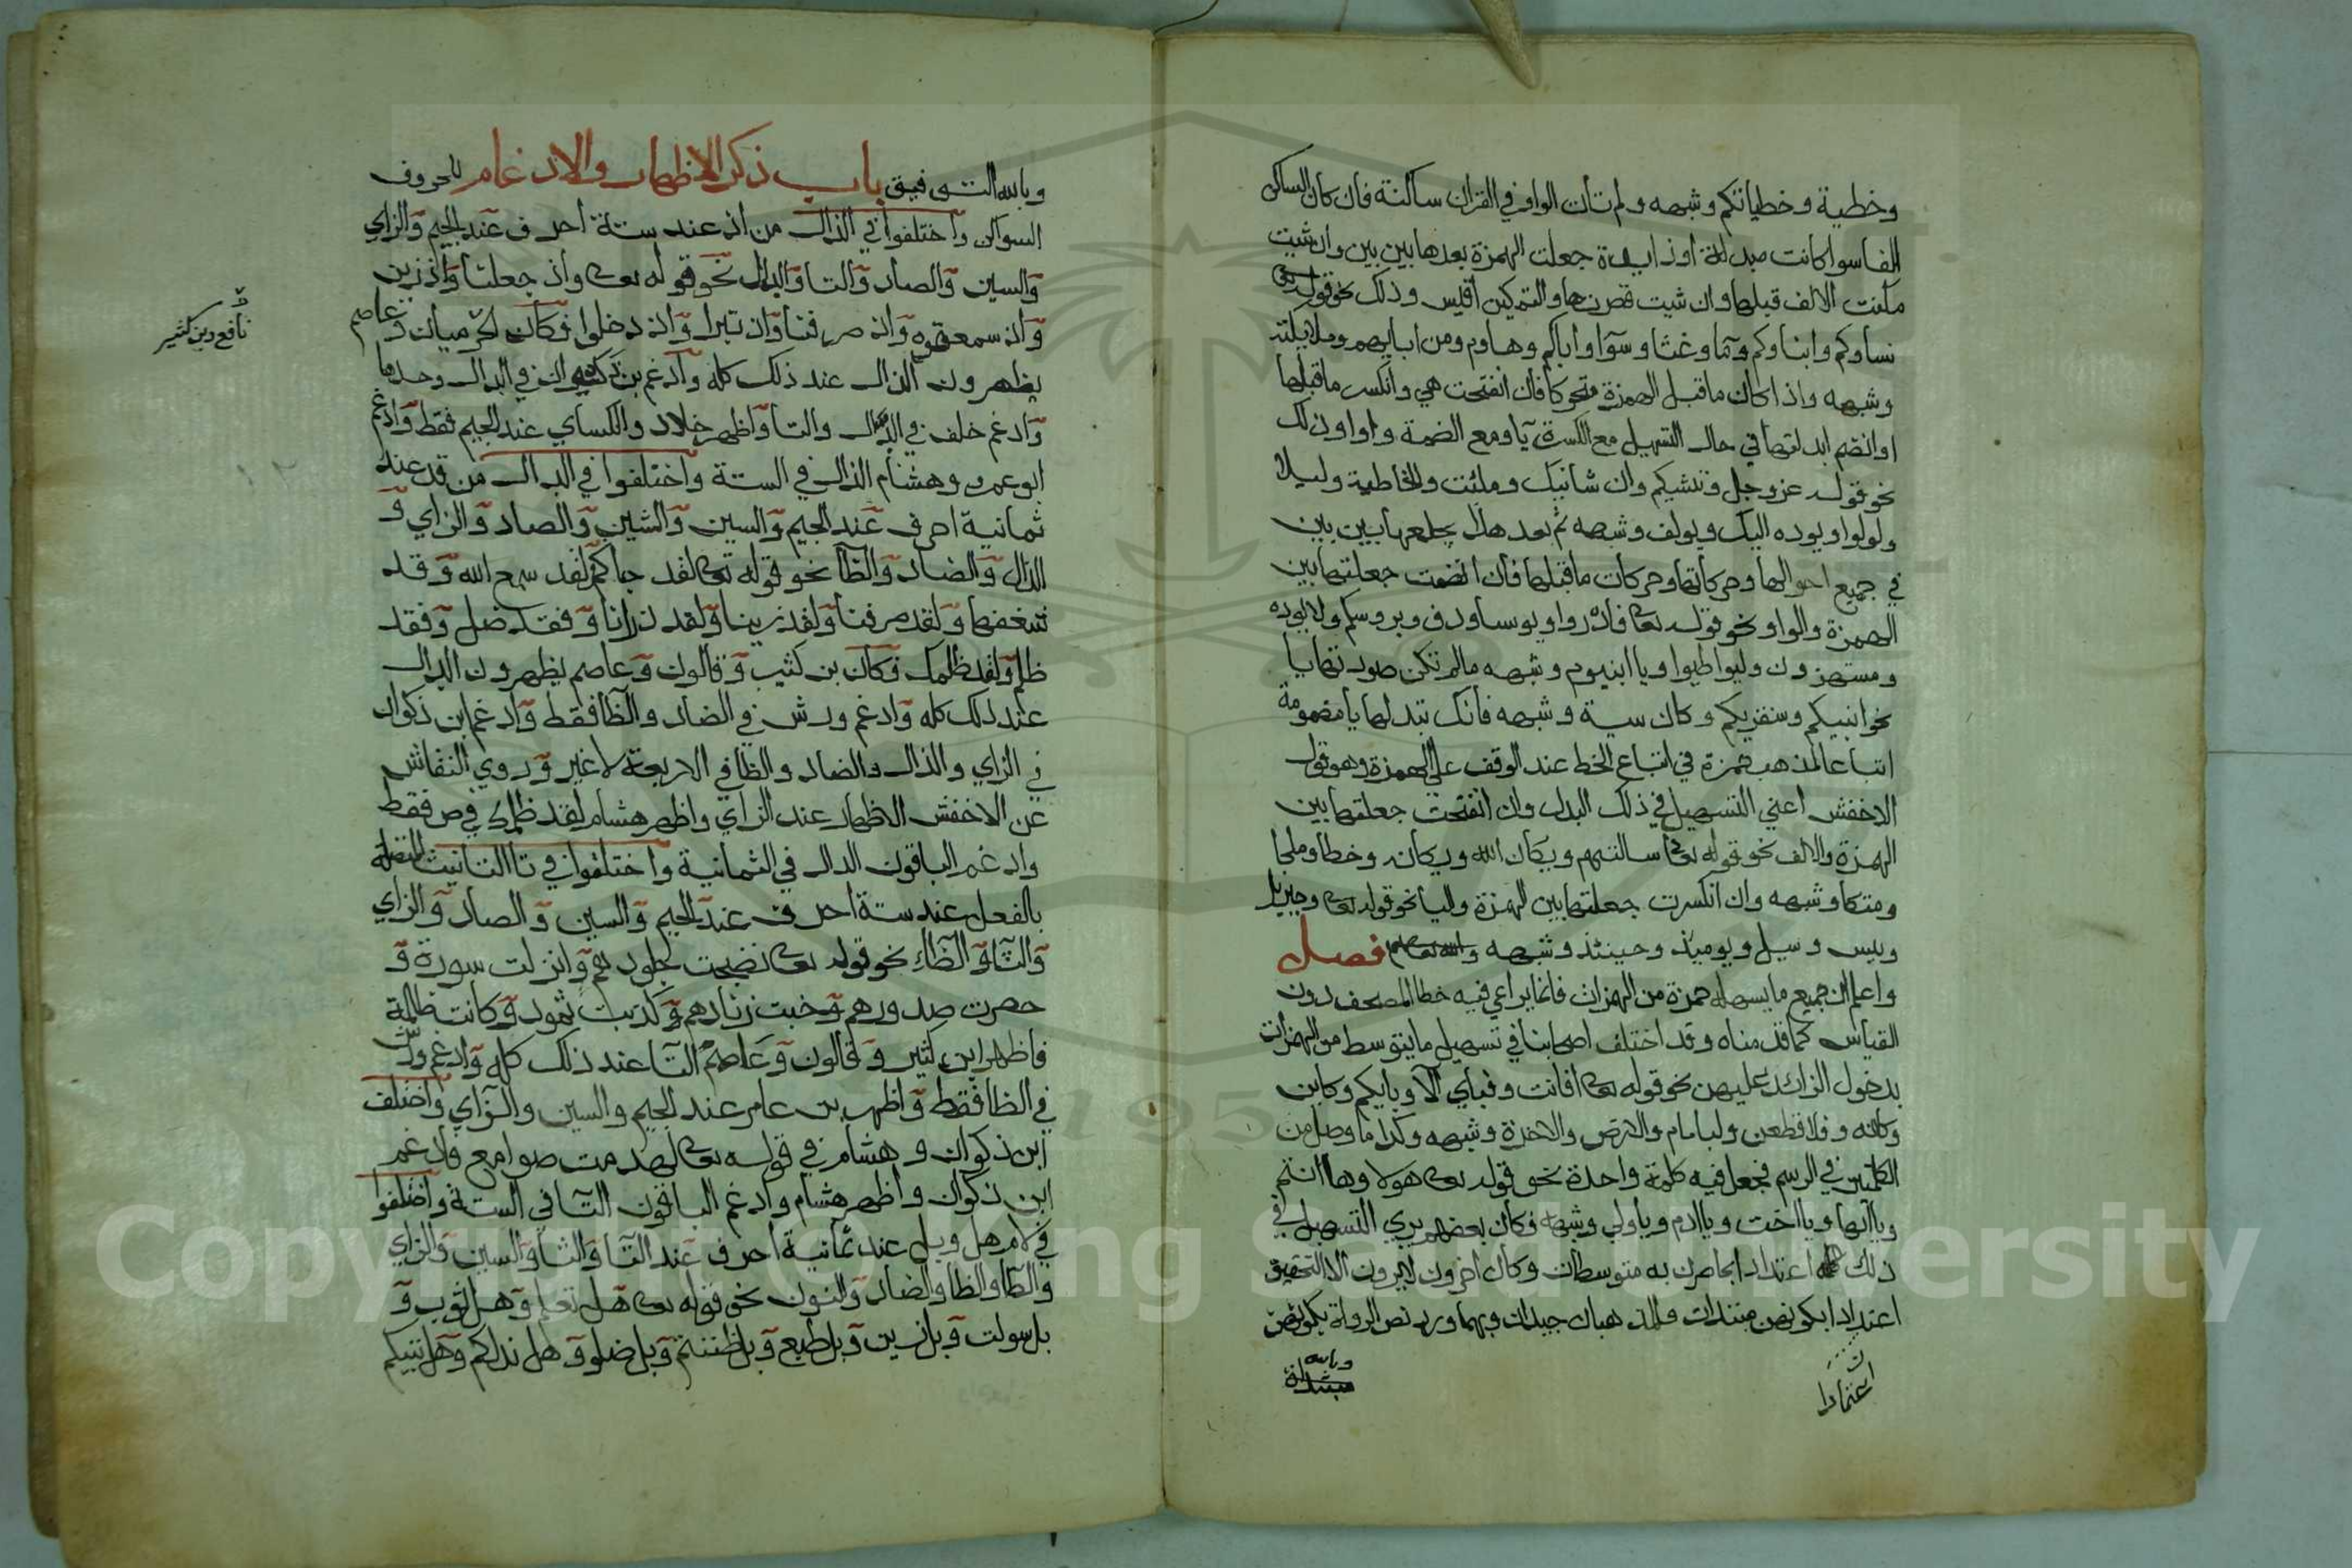 وخطية وخطياتكم وشبهه ولم تات الواو في القران ساكنة فان كان الساكن
الفا سوا كانت مبدلة او زايدة جعلت الهمزة بعدها بين بين وان شيت
مكنت الالف قبلها وان شيت قصرتها والتمكين اقيس وذلك نحو قوله تعالى
نساوكم وابناوكم وما وغثا وسوا واباكم وهاوم ومن ابايهم وملايكته
وشبهه واذا كان ما قبل الهمزة متحركا فان انفتحت هي وانكسر ما قبلها
او انضم ابدلتها في حال التسهيل مع الكسرة يا ومع الضمة واوا وذلك
نحو قوله عز وجل وننشيكم وان شانيك وملئت والخاطية وليلا
ولولوا ويوده اليك ويولف وشبهه ثم بعد هذا يجعلها بين بين
في جميع احوالها وحركاتها وحركات ما قبلها فان انضمت جعلتها بين
الهمزة والواو نحو قوله تعالى فادروا ويوسا وروف وبروسكم ولا يوده
ومستهزون وليواطيوا ويا ابنيوم وشبهه ما لم تكن صورتها يا
نحو انبيكم وسنقريكم وكان سية وشبهه فانك تبدلها يا مضمومة
اتباعا لمذهب حمزة في اتباع الخط عند الوقف على الهمزة وهو قول
الاخفش اعني التسهيل في ذلك البدل وان انفتحت جعلتها بين
الهمزة والالف نحو قوله تعالى سالتهم ويكان الله ويكانه وخطا وملجا
ومتكا وشبهه وان انكسرت جعلتها بين الهمزة واليا نحو قوله تعالى وجبريل
وييس وسيل ويوميذ وحينئذ وشبهه والله تعالى اعلم فصل
واعلم ان جميع ما يسهله حمزة من الهمزات فانما يراعي فيه خط المصحف دون
القياس كما قدمناه وقد اختلف اصحابنا في تسهيل ما يتوسط من الهمزات
بدخول الزائد عليهن نحو قوله تعالى افانت وفباي الا وبايكم وكاين
وكانه وفلاقطعن ولبامام والارض والاخرة وشبهه وكذا ما وصل من
الكلمتين في الرسم فجعل فيه كلمة واحدة نحو قوله تعالى هولا وها انتم
ويا ايها ويا اخت ويا ادم ويا ولي وشبهه فكان بعضهم يري التسهيل في
ذلك اعتدادا بما صرن به متوسطات وكان اخرون لا يرون الا التحقيق
اعتدادا بكونهن مبتدات والمذهبان جيدان وبهما ورد نص الرواة بكونهن
اعتمادا
مبتدلة
وبالله
وبالله التوفيق باب ذكر الاظهار والادغام للحروف
السواكن واختلفوا في الذال من اذ عند ستة احرف عند الجيم والزاي
والسين والصاد والتا والدال نحو قوله تعالى واذ جعلنا واذ زين
واذ سمعتموه واذ صرفنا واذ تبرا واذ دخلوا فكان الحرميان وعاصم
يظهرون الذال عند ذلك كله وادغم بن ذكوان في الدال وحدها
وادغم خلف في الدال والتا واظهر خلاد والكساي عند الجيم فقط وادغم
ابو عمرو وهشام الذال في الستة واختلفوا في الدال من قد عند
ثمانية احرف عند الجيم والسين والشين والصاد والزاي و
الذال والضاد والظا نحو قوله تعالى لقد جاكم لقد سمع الله وقد
شغفها ولقد صرفنا ولقد زينا ولقد ذرانا وفقد ضل وفقد
ظلم ولقد ظلمك فكان بن كثير وقالون وعاصم يظهرون الدال
عند ذلك كله وادغم ورش في الضاد والظا فقط وادغم ابن ذكوان
في الزاي والذال والضاد والظا في الاربعة لا غير وروي النقاش
عن الاخفش الاظهار عند الزاي واظهر هشام لقد ظلمك في ص فقط
وادغم الباقون الدال في الثمانية واختلفوا في تا التانيث المتصلة
بالفعل عند ستة احرف عند الجيم والسين والصاد والزاي
والثا والظا نحو قوله تعالى نضجت جلودهم وانزلت سورة و
حصرت صدورهم وخبت زدناهم وكذبت ثمود وكانت ظالمة
فاظهر ابن كثير وقالون وعاصم التا عند ذلك كله وادغم ورش
في الظا فقط واظهر بن عامر عند الجيم والسين والزاي واختلف
ابن ذكوان وهشام في قوله تعالى لهدمت صوامع فادغم
ابن ذكوان واظهر هشام وادغم الباقون التا في الستة واختلفوا
في لام هل وبل عند ثمانية احرف عند التا والثا والسين والزاي
والطا والظا والضاد والنون نحو قوله تعالى هل تعلم وهل ثوب و
بل سولت وبل زين وبل طبع وبل ظننتم وبل ضلوا وهل ندلكم وهل ننبيكم
نافع وبن كثير
Copyright © King Saud University
195